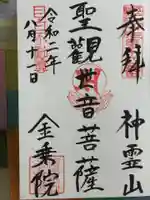 奉拝 神霊山
聖観世音菩薩
令和二年
八月十一日
金乗院